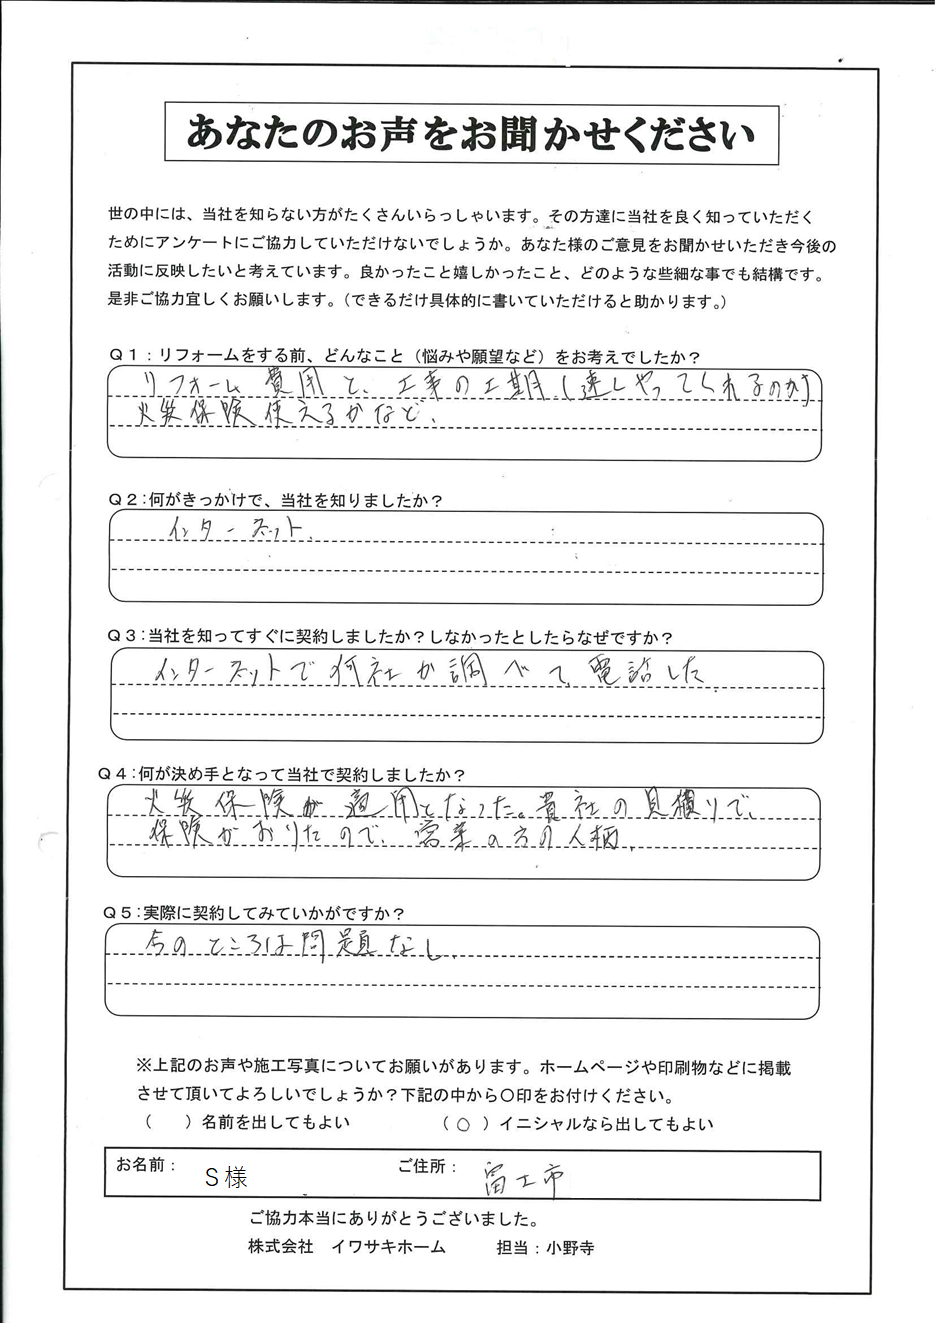 あなたのお声をお聞かせください
世の中には、当社を知らない方がたくさんいらっしゃいます。その方達に当社を良く知っていただく
ためにアンケートにご協力していただけないでしょうか。あなた様のご意見をお聞かせいただき今後の
活動に反映したいと考えています。良かったこと嬉しかったこと、どのような些細な事でも結構です。
是非ご協力宜しくお願いします。（できるだけ具体的に書いていただけると助かります。）
Ｑ１：リフォームをする前、どんなこと（悩みや願望など）をお考えでしたか？
リフォーム費用と、工事の工期、(速しやってくれるのか)
火災保険使えるかなど、
Ｑ２：何がきっかけで、当社を知りましたか？
インターネット、
Ｑ３：当社を知ってすぐに契約しましたか？しなかったとしたらなぜですか？
インターネットで何社か調べて、電話した
Ｑ４：何が決め手となって当社で契約しましたか？
火災保険が適用となった。貴社の見積りで、
保険がおりたので、営業の方の人柄、
Ｑ５：実際に契約してみていかがですか？
今のところは問題なし、
※上記のお声や施工写真についてお願いがあります。ホームページや印刷物などに掲載
させて頂いてよろしいでしょうか？下記の中から○印をお付けください。
（　　）名前を出してもよい　（ ○ ）イニシャルなら出してもよい
お名前： Ｓ様 ご住所： 富士市
ご協力本当にありがとうございました。
株式会社　イワサキホーム　担当：小野寺